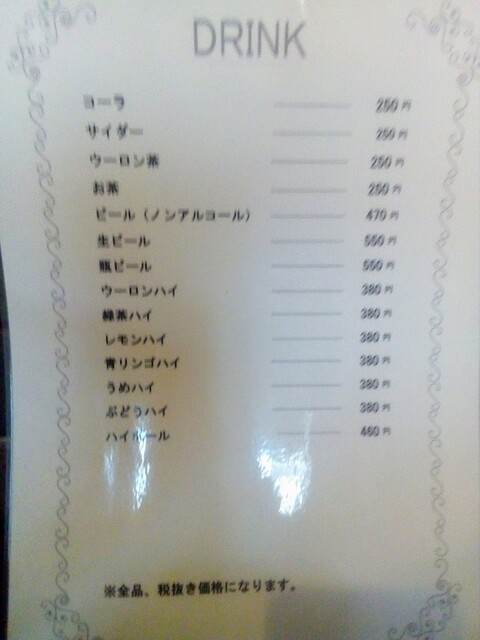 DRINK
コーラ 250円
サイダー 250円
ウーロン茶 250円
お茶 250円
ビール（ノンアルコール） 470円
生ビール 550円
瓶ビール 550円
ウーロンハイ 380円
緑茶ハイ 380円
レモンハイ 380円
青リンゴハイ 380円
うめハイ 380円
ぶどうハイ 380円
ハイボール 460円
※全品、税抜き価格になります。